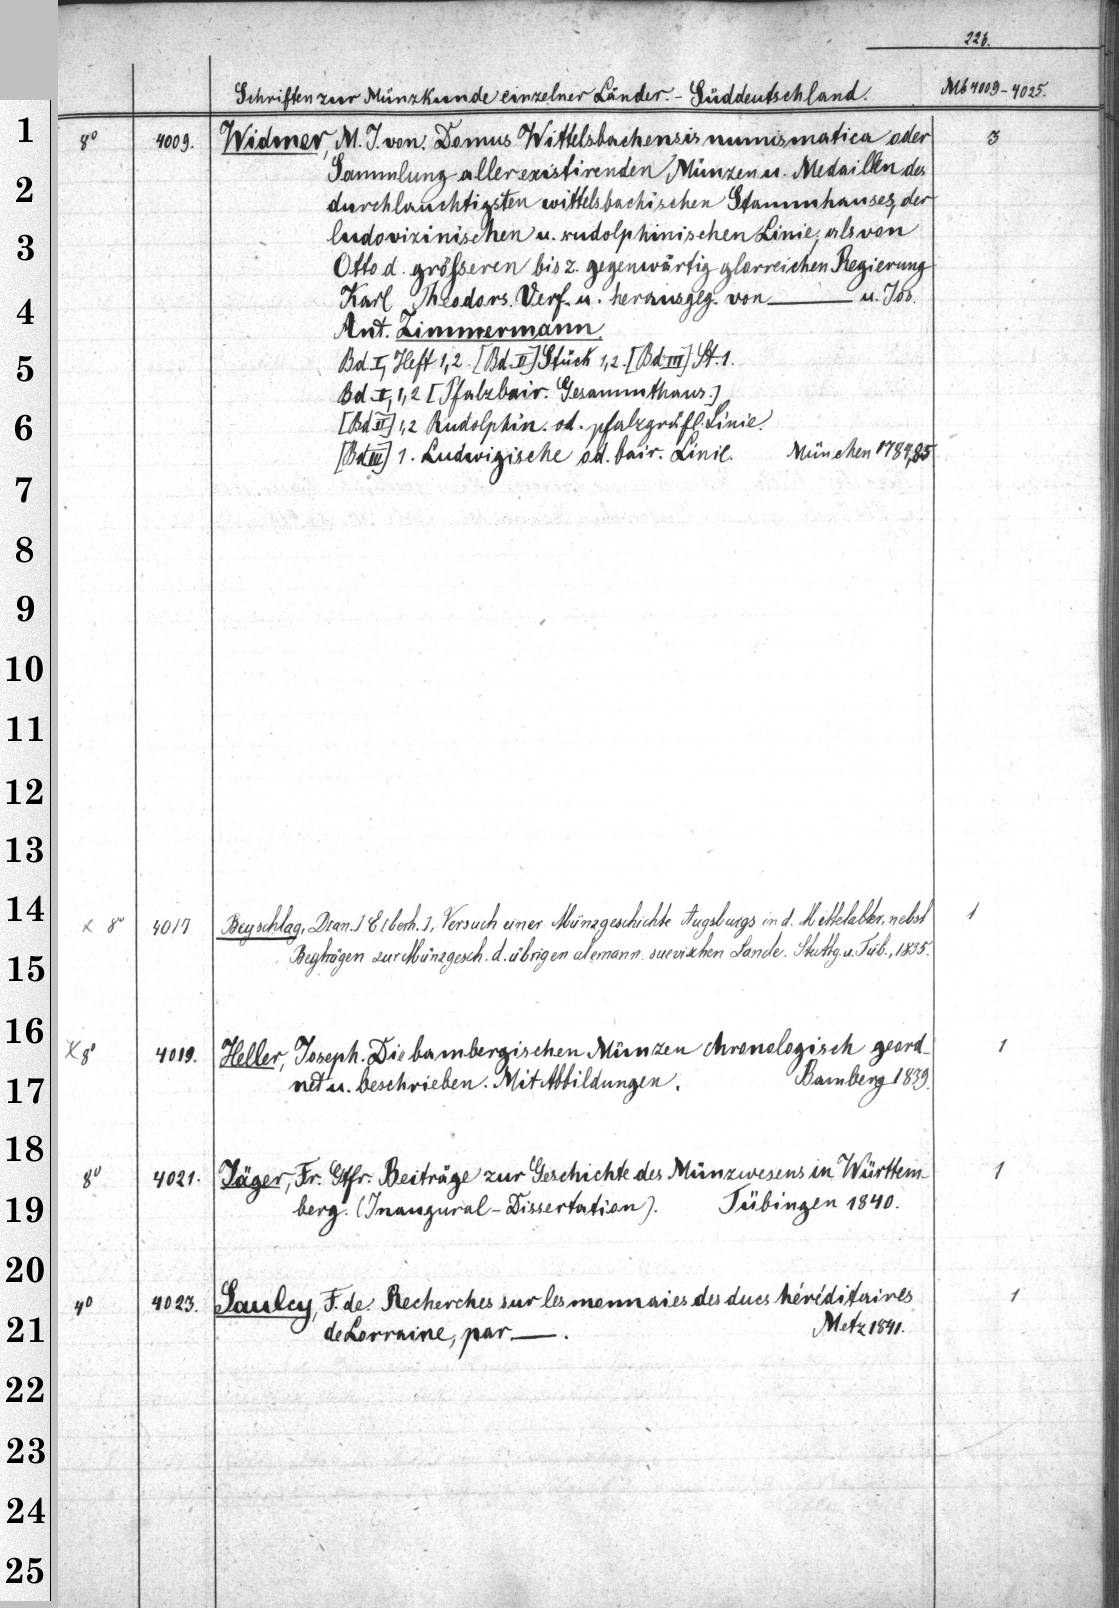 226.
Schriften zur Münzkunde einzelner Länder. - Süddeutschland. Mb 4009-4025.
1
8° 4009. Widmer, M. J. von. Domus Wittelsbachensis numismatica oder 3
Sammlung aller existirenden Münzen u. Medaillen des
2
durchlauchtigsten wittelsbachischen Stammhauses, der
3
ludovizinischen u. rudolphinischen Linie, als von
Otto d. grösseren bis z. gegenwärtig glorreichen Regierung
4
Karl Theodors. Verf. u. herausgeg. von ——— u. Jos.
Ant. Zimmermann.
5
Bd. I, Heft 1,2. [Bd. II] Stück 1,2. [Bd. III] St. 1.
Bd. I, 1,2 [Pfalzbair. Gesammthaus.]
6
[Bd. II] 1,2 Rudolphin. od. pfalzgräfl. Linie.
[Bd. III] 1. Ludwigische od. bair. Linie. München 1784,85
7
8
9
10
11
12
13
14
x 8° 4017 Beyschlag, D[an.] E[berh.], Versuch einer Münzgeschichte Augsburgs in d. Mittelalter, nebst 1
15
Beyträgen zur Münzgesch. d. übrigen alemann. suevischen Lande. Stuttg. u. Tüb., 1835.
16
X 8° 4019. Heller, Joseph. Die bambergischen Münzen chronologisch geord- 1
17
net u. beschrieben. Mit Abbildungen. Bamberg 1839.
18
8° 4021. Jäger, Fr. Gtfr. Beiträge zur Geschichte des Münzwesens in Württem- 1
19
berg. (Inaugural-Dissertation). Tübingen 1840.
20
4° 4023. Saulcy, F. de. Recherches sur les monnaies des ducs héréditaires 1
21
de Lorraine, par ——. Metz 1841.
22
23
24
25